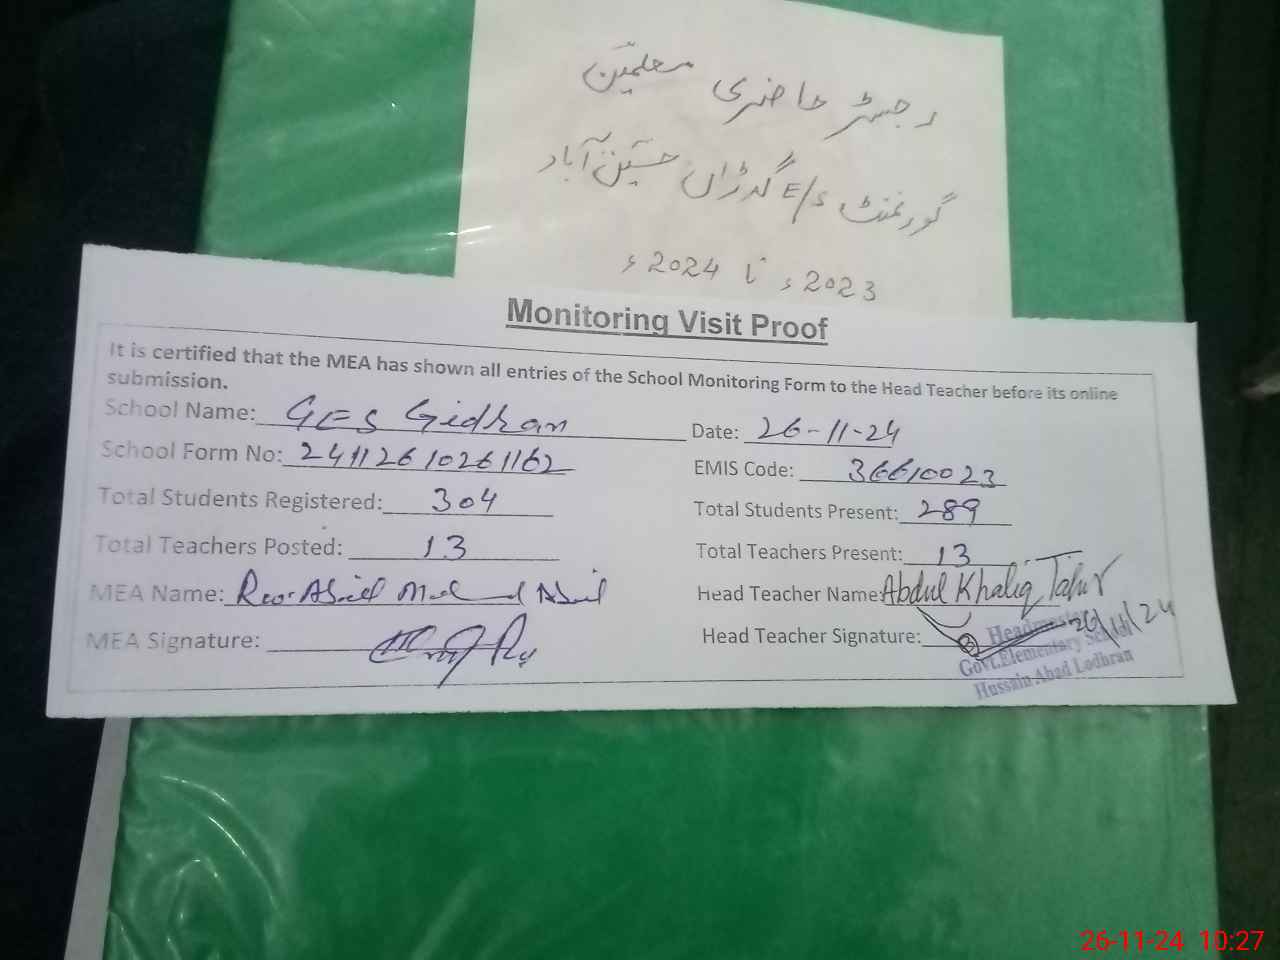 رجسٹر حاضری معلمین
گورنمنٹ E/S گدڑاں حسین آباد
2023ء تا 2024ء
Monitoring Visit Proof
It is certified that the MEA has shown all entries of the School Monitoring Form to the Head Teacher before its online
submission.
School Name: GES Gidran Date: 26-11-24
School Form No: 24112610261162 EMIS Code: 36610023
Total Students Registered: 304 Total Students Present: 289
Total Teachers Posted: 13 Total Teachers Present: 13
MEA Name: Head Teacher Name: Abdul Khaliq Tahir
MEA Signature: Head Teacher Signature: 26/11/24
Headmaster
Govt.Elementary School
Hussain Abad Lodhran
26-11-24 10:27